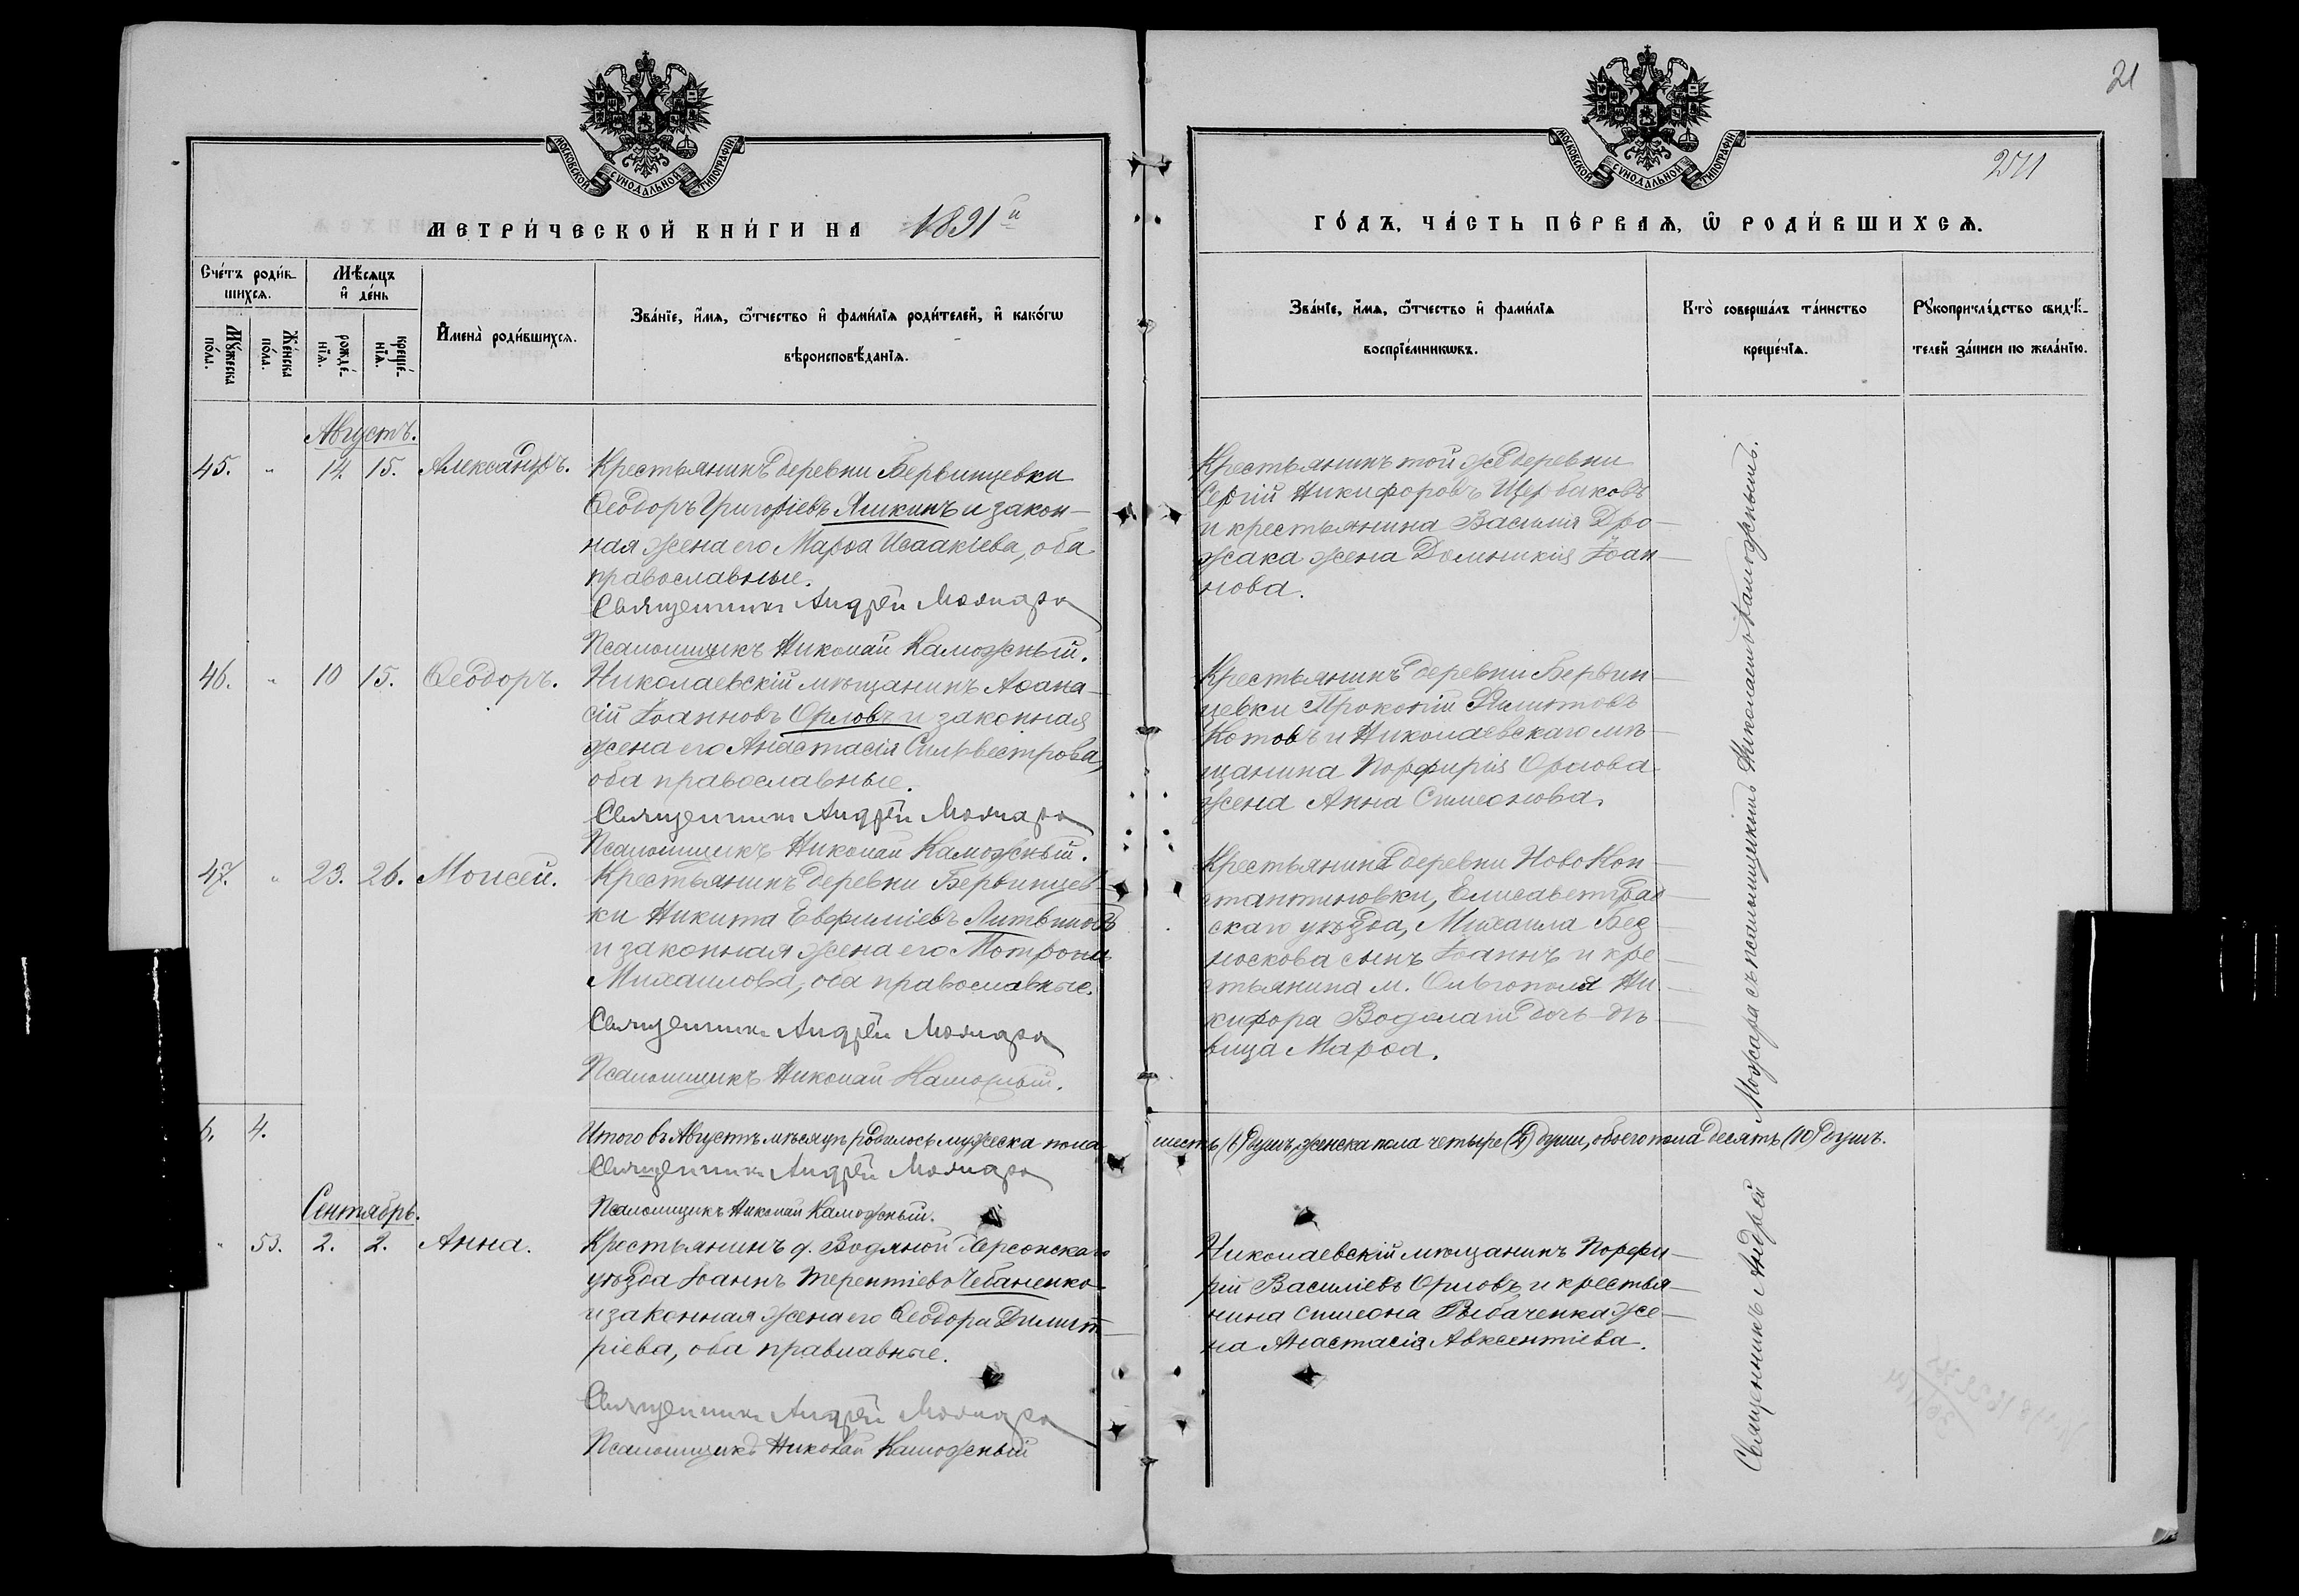 21
МОСКОВСКОЙ СѴНОДАЛЬНОЙ ТИПОГРАФІИ
МОСКОВСКОЙ СѴНОДАЛЬНОЙ ТИПОГРАФІИ
МЕТРИ́ЧЕСКОЙ КНИ́ГИ НА 1891й
ГО́ДЪ, ЧА́СТЬ ПЕ́РВАѦ, Ѿ РОДИ́ВШИХСѦ.
Сче́тъ роди́в-
шихсѧ.
Мѣ́сѧцъ
и҆ де́нь
Мꙋ́жеска
по́ла.
Же́нска
по́ла.
рожде́-
нїѧ.
креще́-
нїѧ.
И҆мена̀ роди́вшихсѧ.
Зва́нїе, и҆́мѧ, ѻ҆́тчество и҆ фами́лїѧ роди́телей, и҆ како́гѡ
вѣроисповѣ́данїѧ.
Зва́нїе, и҆́мѧ, ѻ҆́тчество и҆ фами́лїѧ
воспрїе́мникѡвъ.
Кто̀ соверша́лъ та́инство
креще́нїѧ.
Рꙋкоприкла́дство свидѣ́-
телей за́писи по жела́нїю.
Августъ.
45. " 14. 15. Александръ.
Крестьянинъ деревни Бервинцевки
Ѳеодоръ Григоріевъ Яшкинъ и закон-
ная жена его Марѳа Исаакіева, оба
православные.
Священникъ Андрей Можара
Псаломщикъ Николай Каможный.
Крестьянинъ той же деревни
Сергій Никифоровъ Щербаковъ
и крестьянина Василія Дро-
жака жена Домникія Іоан-
нова.
46. " 10 15. Ѳеодоръ.
Николаевскій мѣщанинъ Аѳана-
сій Іоанновъ Орловъ и законная
жена его Анастасія Сильвестрова,
оба православные.
Священникъ Андрей Можара
Псаломщикъ Николай Каможный.
Крестьянинъ деревни Бервин-
цевки Прокопій Филиповъ
Котовъ и Николаевскаго мѣ-
щанина Порфирія Орлова
жена Анна Симеонова.
47. " 23. 26. Моисей.
Крестьянинъ деревни Бервинцев-
ки Никита Евфиміевъ Литвиновъ
и законная жена его Мотрона
Михаилова, оба православные.
Священникъ Андрей Можара
Псаломщикъ Николай Каможный.
Крестьянина деревни Ново Кон-
стантиновки, Елисаветград-
скаго уѣзда, Михаила Бед
носкова сынъ Іоаннъ и кре-
стьянина м. Ольгополя Ни-
кифора Водолаги дочь дѣ-
вица Марѳа.
6. 4.
Итого въ Августѣ мѣсяцѣ родилось мужеска пола шесть (6) душъ, женска пола четыре (4) души, обоего пола десять (10) душъ.
Священникъ Андрей Можара
Псаломщикъ Николай Каможный.
Сентябрь.
" 53. 2. 2. Анна.
Крестьянинъ д. Водяной Херсонскаго
уѣзда Іоаннъ Терентіевъ Чебаненко
и законная жена его Ѳеодора Димит-
ріева, оба правлавные.
Священникъ Андрей Можара
Псаломщикъ Николай Каможный
Николаевскій мѣщанинъ Порфи-
рій Василіевъ Орловъ и крестья-
нина Симеона Рыбаченка же-
на Анастасія Авксентіева.
Священникъ Андрей Можара съ псаломщикомъ Николаемъ Каможнымъ.